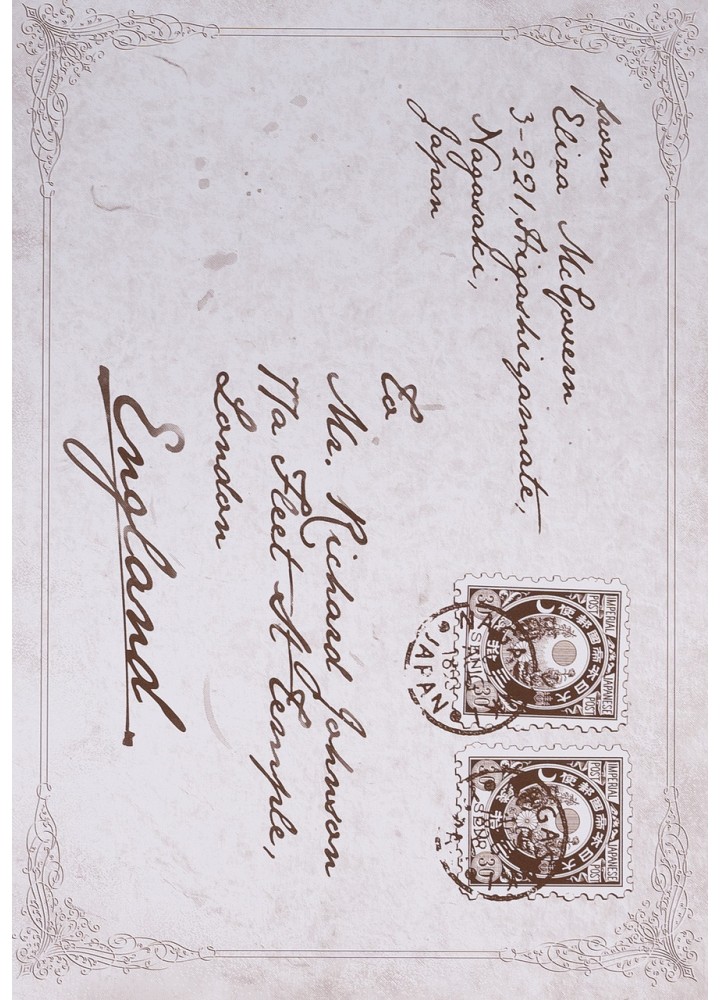 from
Eliza McGovern
3-221, Higashiyamate,
Nagasaki,
Japan
To
Mr. Richard Johnson
17a Fleet St Temple,
London
England
IMPERIAL JAPANESE
POST POST
大日本帝国郵便
30 SEN 30
JAPAN
IMPERIAL JAPANESE
POST POST
大日本帝国郵便
SEN 30